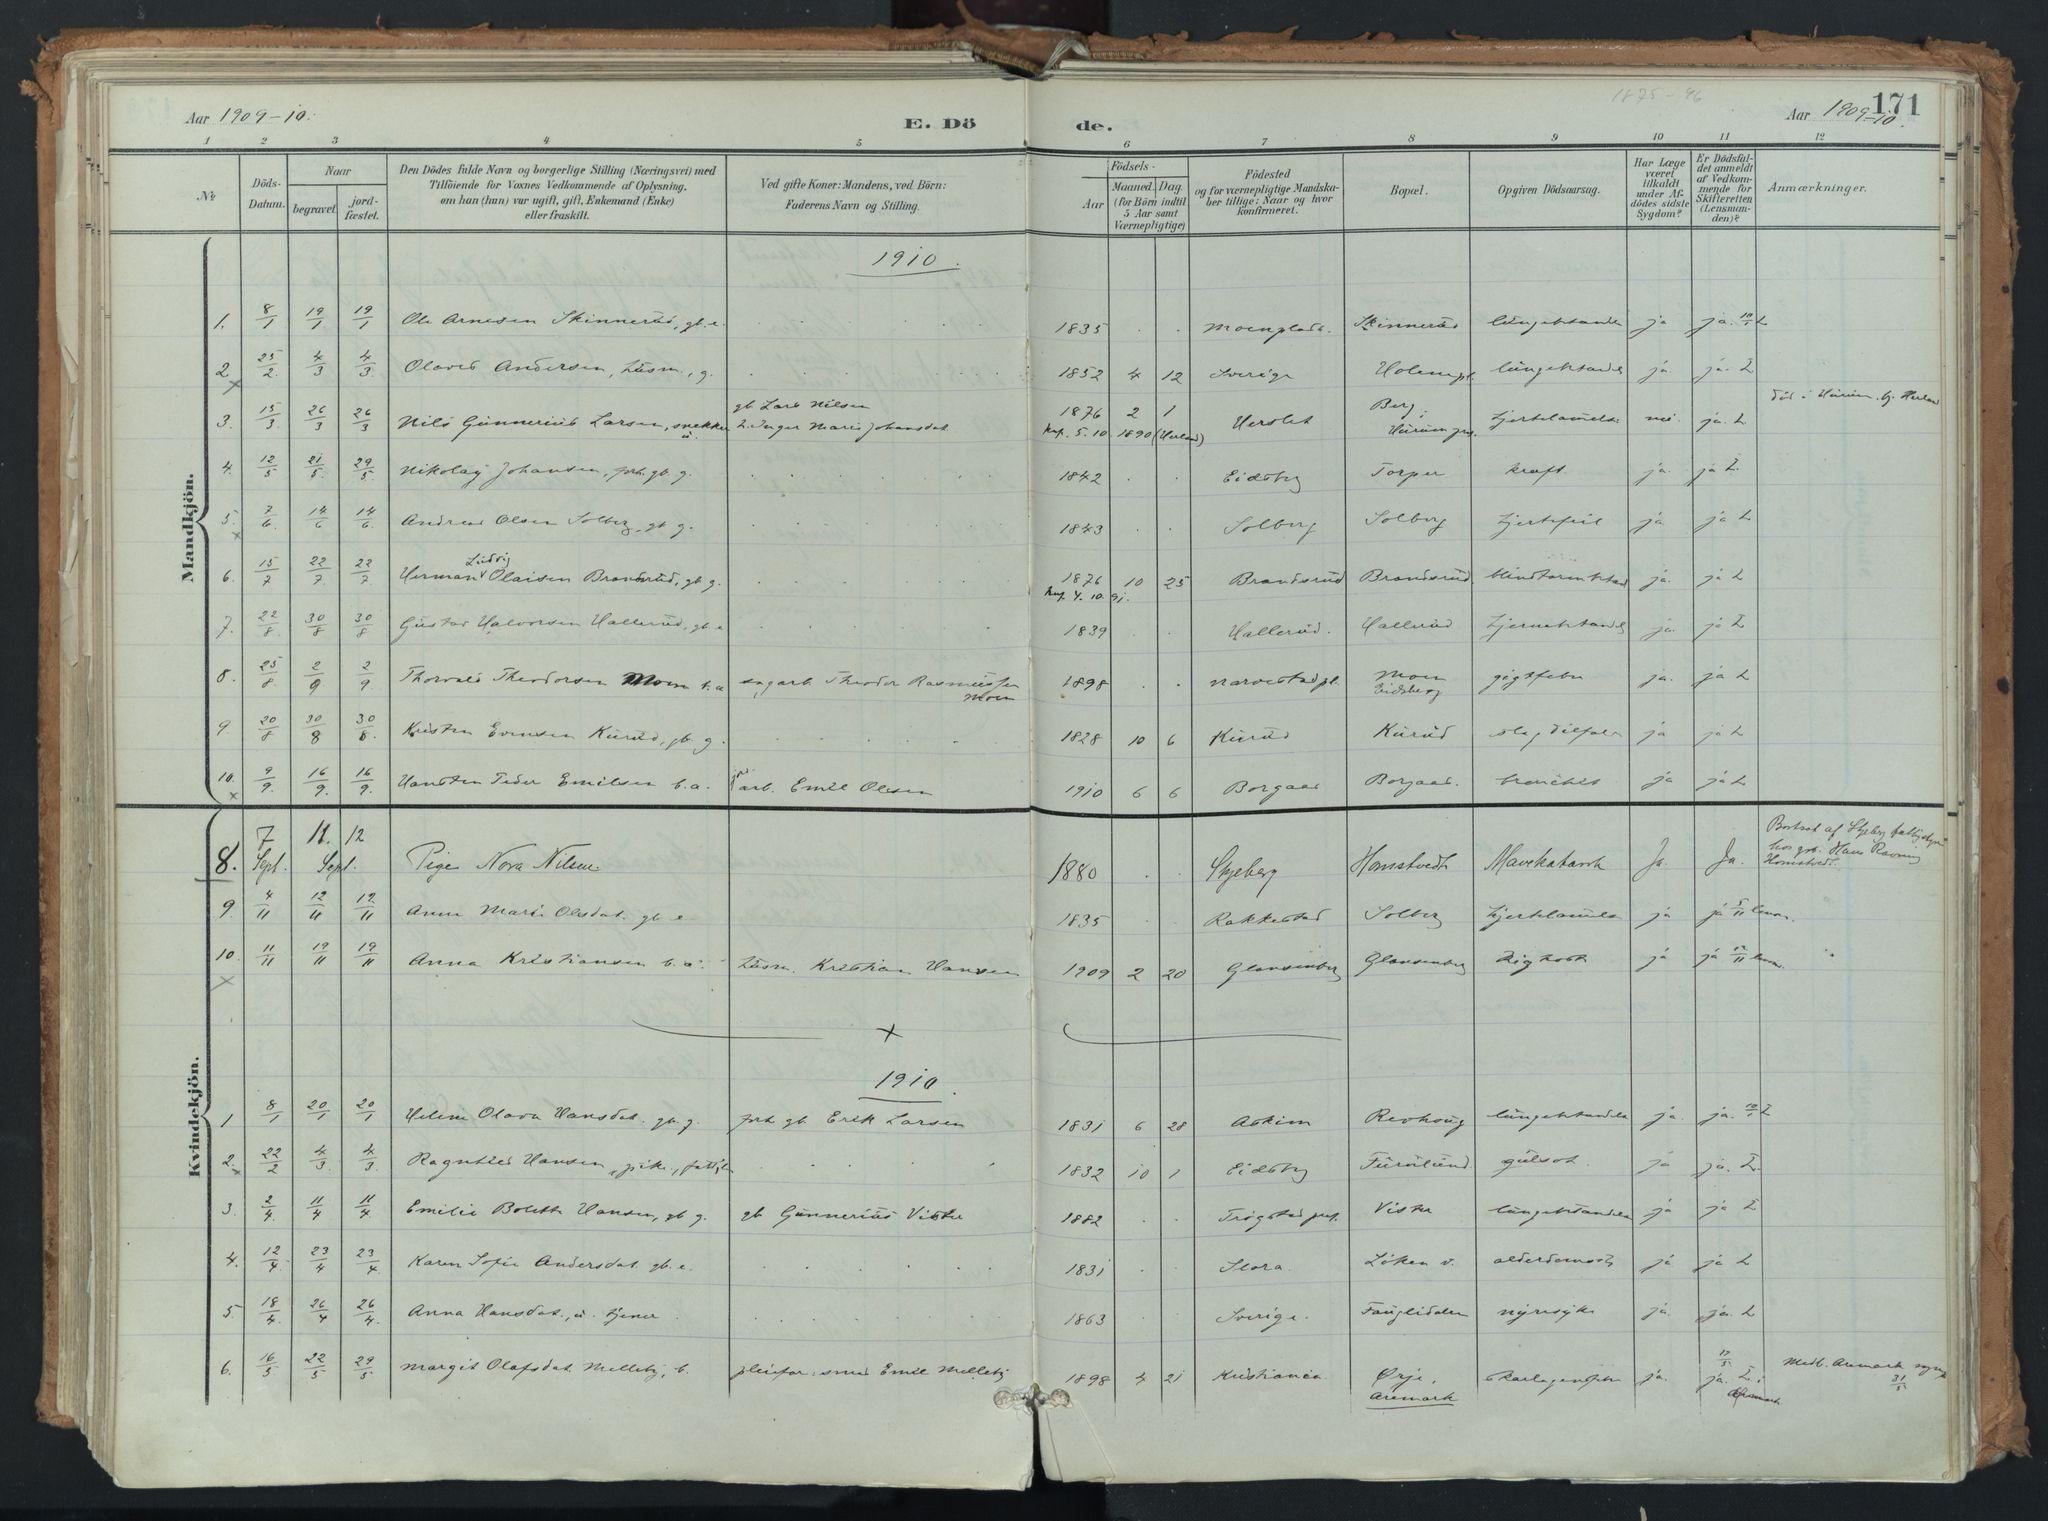 1875-96
Aar 1909-10. E. Dö de. Aar 1909-10. 171
1 2 3 4 5 6 7 8 9 10 11 12
№ Döds-Datum. Naar begravet. jordfæstet. Den Dödes fulde Navn og borgerlige Stilling (Næringsvei) med Tilföiende for Voxnes Vedkommende af Oplysning, om han (hun) var ugift, gift, Enkemand (Enke) eller fraskilt. Ved gifte Koner: Mandens, ved Börn: Faderens Navn og Stilling. Födsels- Aar Maaned. Dag. (for Börn indtil 5 Aar samt Værnepligtige) Födested og for værnepligtige Mandskaber tillige: Naar og hvor konfirmeret. Bopæl. Opgiven Dödsaarsag. Har Læge været tilkaldt under Afdödes sidste Sygdom? Er Dödsfaldet anmeldt af Vedkommende for Skifteretten (Lensmanden)? Anmærkninger.
Mandkjön.
1910.
1. 8/1 19/1 19/1 Ole Arnesen Skinnerud, gb. e. 1835 Moenplads. Skinnerud lungebetændelse ja ja. 10/1 L
2 x 25/2 4/3 4/3 Olaves Andersen, husm., g. 1852 4 12 Sverige Holempl. lungebetændelse ja ja. L
3. 15/3 26/3 26/3 Nils Gunnerius Larsen, snekker u. gb. Lars Nilsen h. Inger Marie Johansdat. 1876 2 1 knf. 5.10 1890 (Herland) Herslet Berg, Hurum pr. hjertelamelse nei ja. L död i Hurum, bg. Herland
4. 12/5 21/5 29/5 Nikolay Johansen, forh. gb. g. 1842 Eidsberg Torper kræft ja. ja L
5. x 7/6 14/6 14/6 Andreas Olsen Solberg, gb. g. 1843 Solberg Solberg hjertefeil ja ja L
6. 15/7 22/7 22/7 Herman Ludvig Olaisen Brandsrud, gb. g. 1876 10 25 knf. 4.10.91. Brandsrud Brandsrud blindtarmbetænd ja. ja L
7. 22/8 30/8 30/8 Gustav Halvorsen Hallerud, gb. e 1839 Hallerud. Hallerud hjernebetændelse ja. ja L
8. 25/8 2/9 2/9 Thorvald Theodorsen Moen b. a sagarb. Theodor Rasmussen Moen 1898 Narvestad pl. Moen Eidsberg gigtfeber ja ja L
9 20/8 30/8 30/8. Kristen Evensen Kurud, gb. g. 1828 10 6 Kurud Kurud slagtilfælde ja ja L
10. x 9/9. 16/9. 16/9. Hansten Peder Emilsen b. a. arb. Emil Olsen 1910 6 6 Borgaas Borgaas. bronchit ja ja L
Kvindekjön.
8. 7 Sept. 11. 12 Sept. Pige Nora Nilsen 1880 Skjeberg Homstvedt Mavekatarrh Ja. Ja. Bortsat af Skjeberg fattigstyre hos gbr. Hans Homstvedt.
9. 4/11 12/11 12/11 Anne Marie Olsdat. gb. e 1835 Rakkestad Solberg hjertelamelse ja ja 5/11 lensm.
10. x 11/11 19/11 19/11 Anna Kristiansen b. a. husm. Kristian Hansen 1909 2 20 Glansenberg Glansenberg kighoste ja ja 12/11 lensm.
x
1910.
1 8/1 20/1 20/1 Helene Olava Hansdat. gb. g. forh. gb. Erik Larsen 1831 6 28 Askim Revhoug lungebetændelse ja. ja. 10/1 L
2. x 22/2 4/3 4/3. Ragnhild Hansen, pike, fattigl. 1832 10 1 Eidsberg Furulund gulsot. ja ja. L.
3. 2/4. 11/4 11/4. Emilie Bolette Hansen, gb. g. gb. Gunnerius Viste 1882 Trögstad prf. Viste lungebetændelse ja ja L
4. 12/4. 23/4 23/4 Karen Sofie Andersdat. gb. e. 1831 Slora. Löken v. alderdomssvagh. ja ja L
5 18/4 26/4 26/4. Anna Hansdat., u. tjener. 1863 Sverige. Fuglidalen nyresyke ja. ja. L
6. 16/5 22/5 29/5 Margit Olafsdat. Melleby, b. pleiefar: smed Emil Melleby 1898 4 21 Kristiania Ørje, Aremark skarlagensfeber ja. 17/5. ja. L. i Aremark Medb. Aremark sogn 31/5